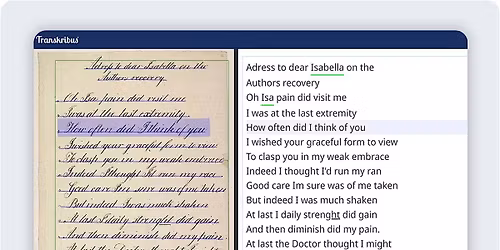 Transkribus
Adress to dear Isabella on the
Authors recovery
Oh Isa pain did visit me
I was at the last extremity
How often did I think of you
I wished your graceful form to view
To clasp you in my weak embrace
Indeed I thought I'd run my race
Good care Im sure was of me taken
But indeed I was much shaken
At last I daily strenght did gain
And then diminish did my pain
Adress to dear Isabella on the
Authors recovery
Oh Isa pain did visit me
I was at the last extremity
How often did I think of you
I wished your graceful form to view
To clasp you in my weak embrace
Indeed I thought I'd run my ran
Good care Im sure was of me taken
But indeed I was much shaken
At last I daily strenght did gain
And then diminish did my pain.
At last the Doctor thought I might